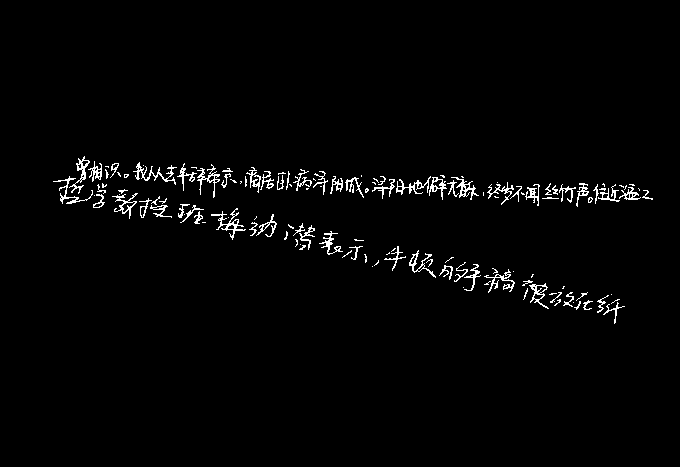 曾相识。我从去年辞帝京，谪居卧病浔阳城。浔阳地僻无音乐，终岁不闻丝竹声。住近湓江
哲学教授班梅动潜表示，牛顿的手稿被放在纸